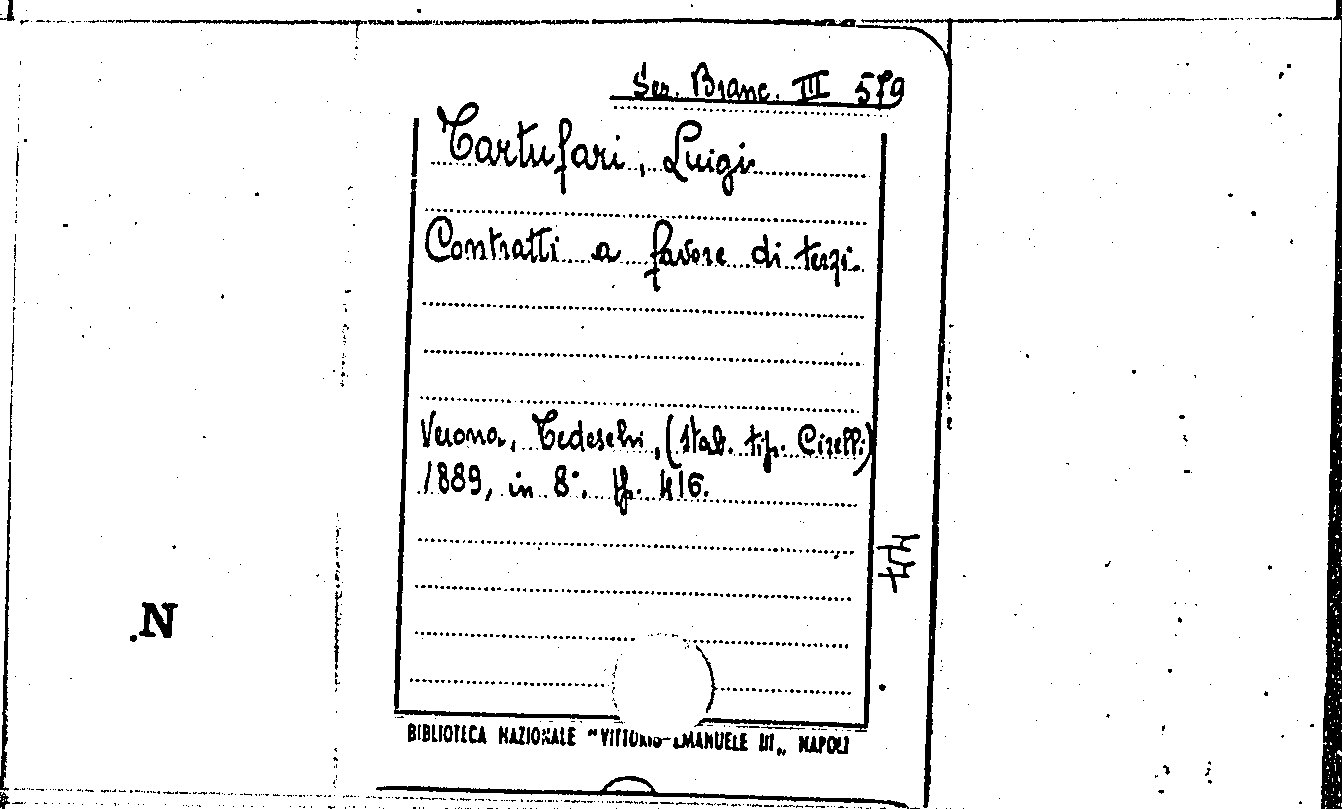 Ser. Branc. III 579
Tartufari, Luigi
Contratti a favore di terzi.
Verona, Tedeschi, (Stab. tip. Cirelli)
1889, in 8°. pp. 416.
BIBLIOTECA NAZIONALE "VITTORIO EMANUELE III„ NAPOLI
.N